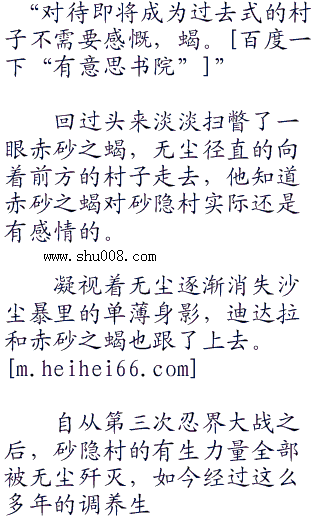 “对待即将成为过去式的村
子不需要感慨，蝎。[百度一
下“有意思书院”]”
回过头来淡淡扫瞥了一
眼赤砂之蝎，无尘径直的向
着前方的村子走去，他知道
赤砂之蝎对砂隐村实际还是
有感情的。
www.shu008.com
凝视着无尘逐渐消失沙
尘暴里的单薄身影，迪达拉
和赤砂之蝎也跟了上去。
[m.heihei66.com]
自从第三次忍界大战之
后，砂隐村的有生力量全部
被无尘歼灭，如今经过这么
多年的调养生